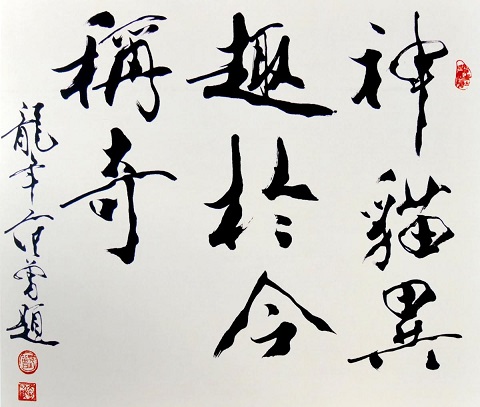 神貓異
趣於今
稱奇
龍年范曾題